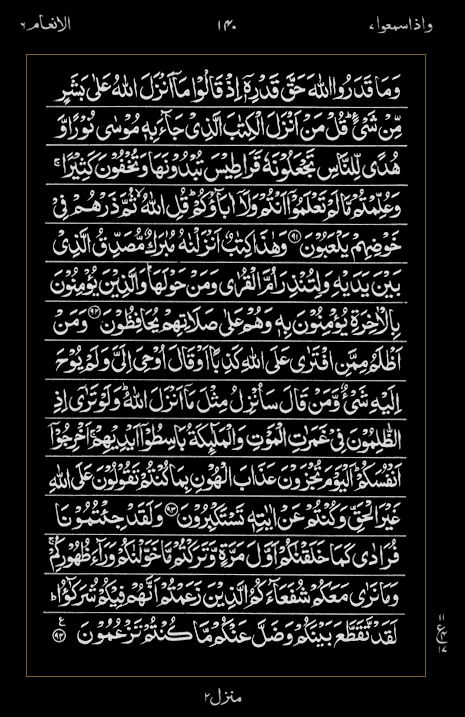 واذاسمعوا٧ ١٤٠ الانعام٦
وَمَا قَدَرُوا اللّٰهَ حَقَّ قَدْرِهٖۤ اِذْ قَالُوْا مَاۤ اَنْزَلَ اللّٰهُ عَلٰى بَشَرٍ
مِّنْ شَیْءٍ ؕ قُلْ مَنْ اَنْزَلَ الْكِتٰبَ الَّذِیْ جَآءَ بِهٖ مُوْسٰى نُوْرًا وَّ
هُدًى لِّلنَّاسِ تَجْعَلُوْنَهٗ قَرَاطِیْسَ تُبْدُوْنَهَا وَتُخْفُوْنَ كَثِیْرًا ۚ
وَعُلِّمْتُمْ مَّا لَمْ تَعْلَمُوْۤا اَنْتُمْ وَلَاۤ اٰبَآؤُكُمْ ؕ قُلِ اللّٰهُ ۙ ثُمَّ ذَرْهُمْ فِیْ
خَوْضِهِمْ یَلْعَبُوْنَ ﴿٩١﴾ وَهٰذَا كِتٰبٌ اَنْزَلْنٰهُ مُبٰرَكٌ مُّصَدِّقُ الَّذِیْ
بَیْنَ یَدَیْهِ وَلِتُنْذِرَ اُمَّ الْقُرٰى وَمَنْ حَوْلَهَا ؕ وَالَّذِیْنَ یُؤْمِنُوْنَ
بِالْاٰخِرَةِ یُؤْمِنُوْنَ بِهٖ وَهُمْ عَلٰى صَلَاتِهِمْ یُحَافِظُوْنَ ﴿٩٢﴾ وَمَنْ
اَظْلَمُ مِمَّنِ افْتَرٰى عَلَى اللّٰهِ كَذِبًا اَوْ قَالَ اُوْحِیَ اِلَیَّ وَلَمْ یُوْحَ
اِلَیْهِ شَیْءٌ وَّمَنْ قَالَ سَاُنْزِلُ مِثْلَ مَاۤ اَنْزَلَ اللّٰهُ ؕ وَلَوْ تَرٰۤى اِذِ
الظّٰلِمُوْنَ فِیْ غَمَرٰتِ الْمَوْتِ وَالْمَلٰٓئِكَةُ بَاسِطُوْۤا اَیْدِیْهِمْ ۚ اَخْرِجُوْۤا
اَنْفُسَكُمْ ؕ اَلْیَوْمَ تُجْزَوْنَ عَذَابَ الْهُوْنِ بِمَا كُنْتُمْ تَقُوْلُوْنَ عَلَى اللّٰهِ
غَیْرَ الْحَقِّ وَكُنْتُمْ عَنْ اٰیٰتِهٖ تَسْتَكْبِرُوْنَ ﴿٩٣﴾ وَلَقَدْ جِئْتُمُوْنَا
فُرَادٰى كَمَا خَلَقْنٰكُمْ اَوَّلَ مَرَّةٍ وَّتَرَكْتُمْ مَّا خَوَّلْنٰكُمْ وَرَآءَ ظُهُوْرِكُمْ ۚ
وَمَا نَرٰى مَعَكُمْ شُفَعَآءَكُمُ الَّذِیْنَ زَعَمْتُمْ اَنَّهُمْ فِیْكُمْ شُرَكٰٓؤُا ؕ
لَقَدْ تَّقَطَّعَ بَیْنَكُمْ وَضَلَّ عَنْكُمْ مَّا كُنْتُمْ تَزْعُمُوْنَ ﴿٩٤﴾ ع
١١
ع
٤
١٧
منزل٢